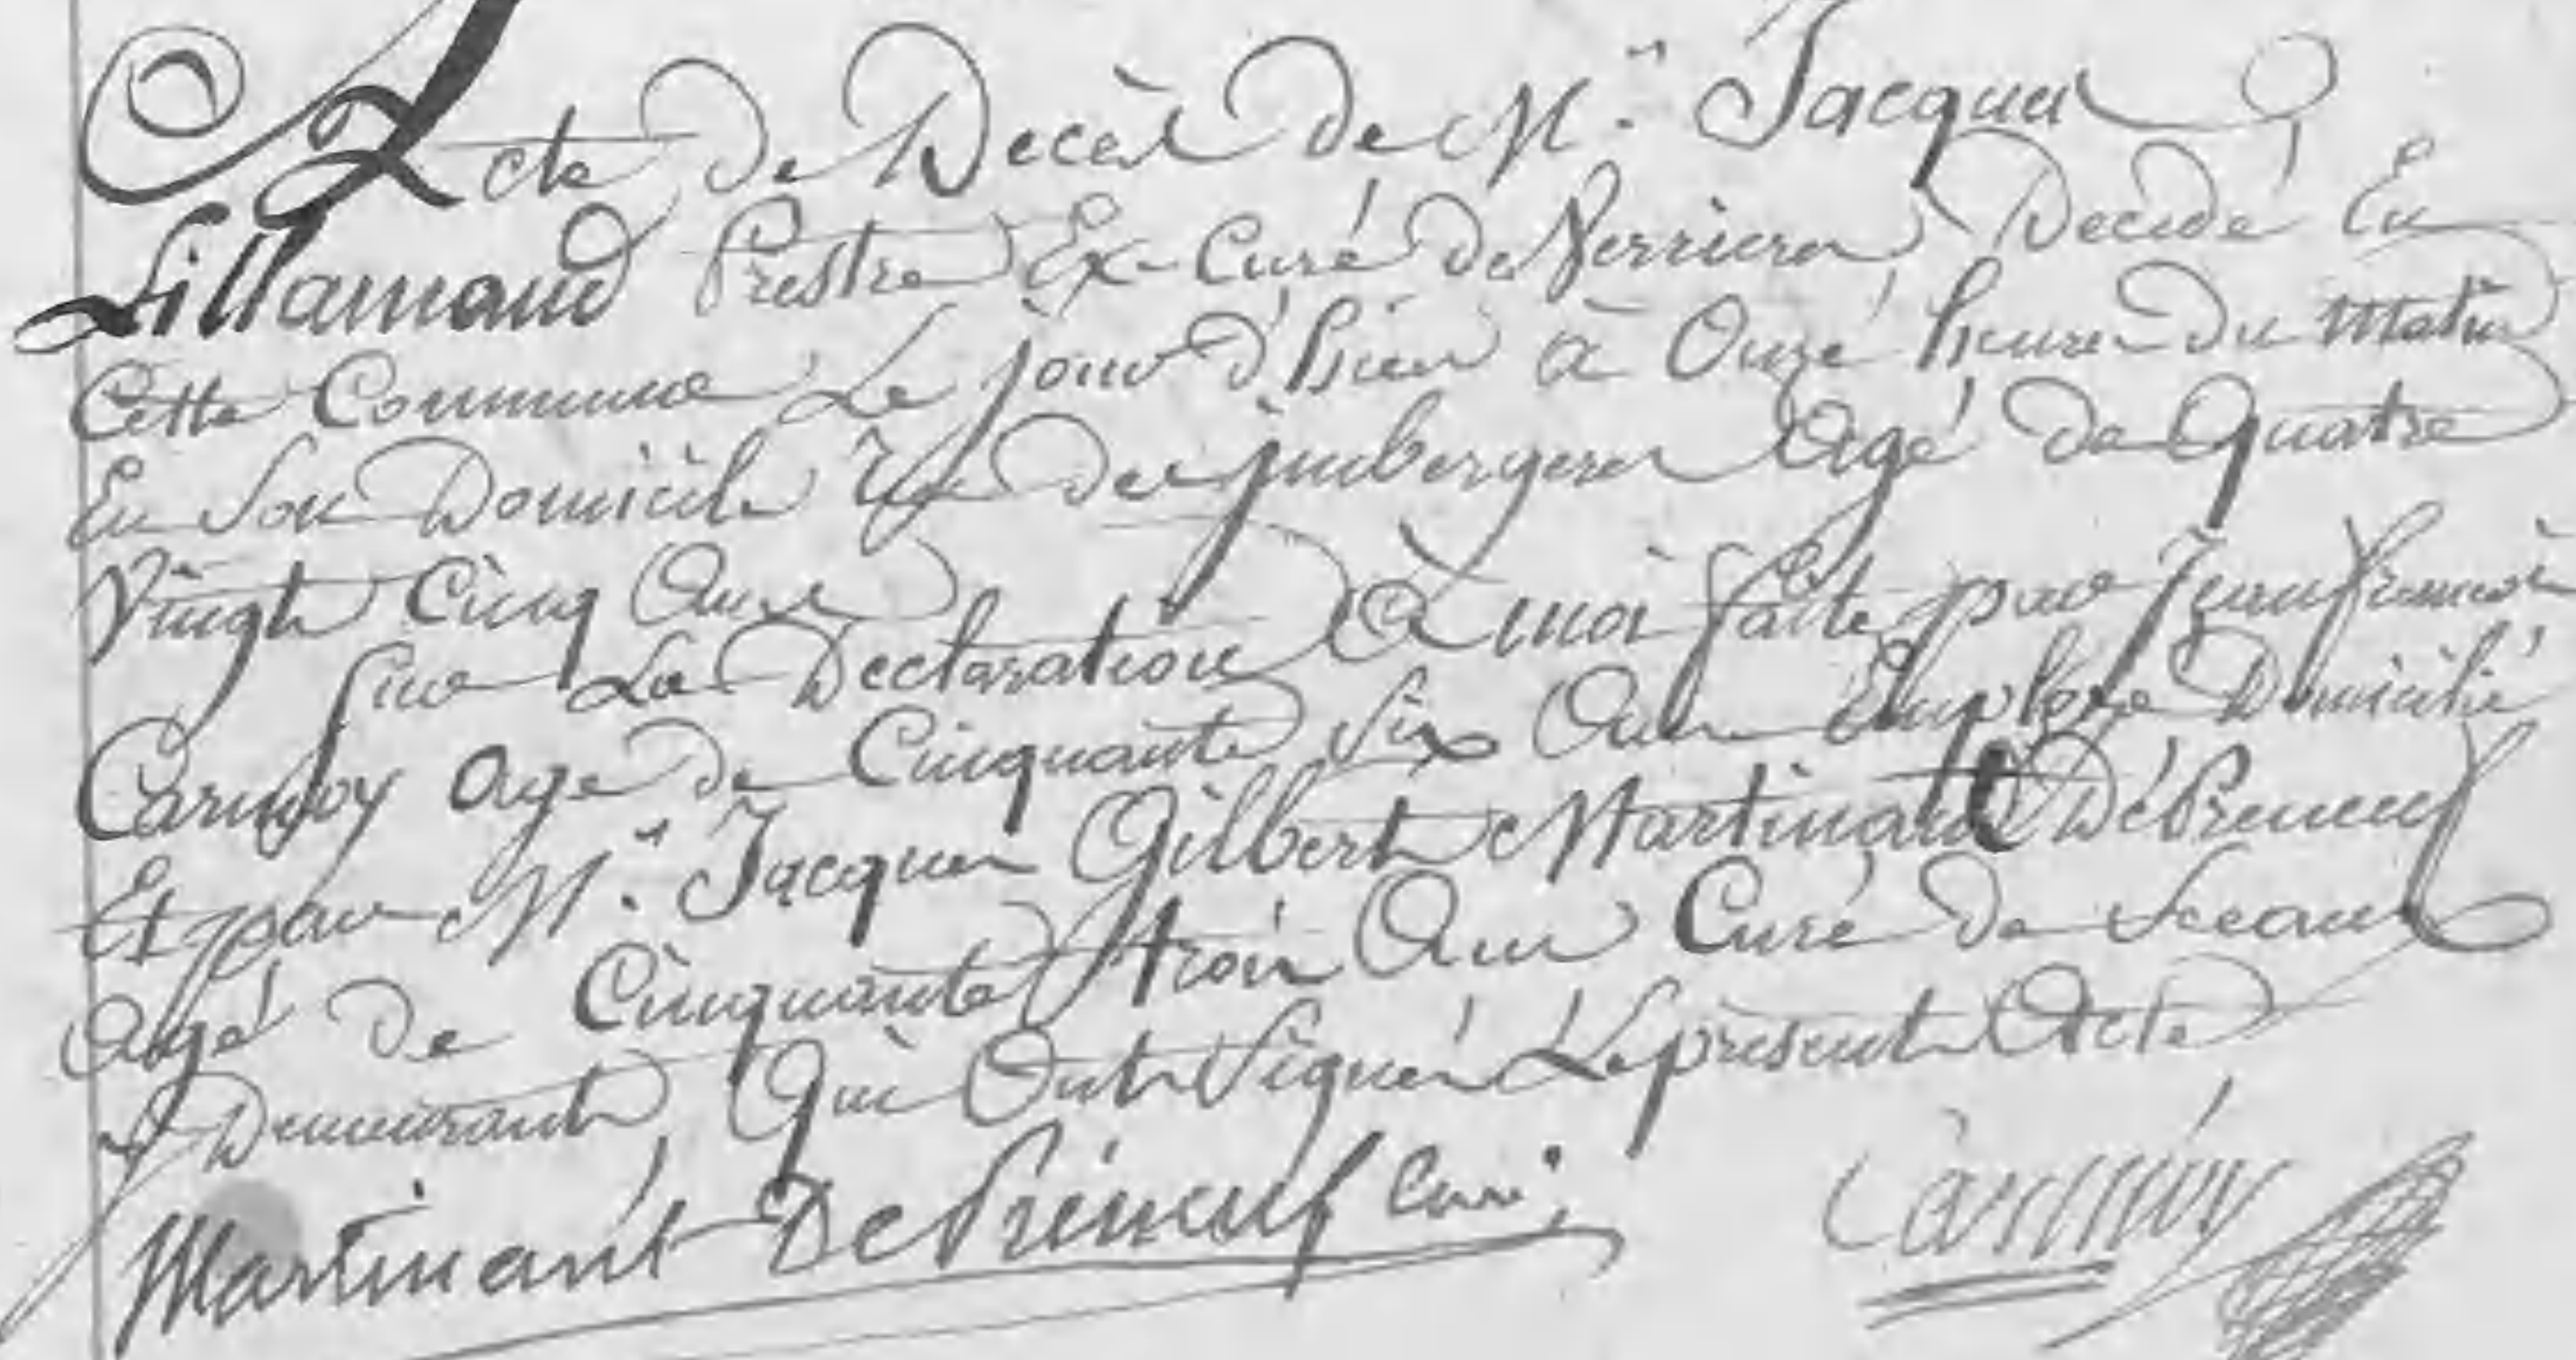 Acte de Decès de Mr. Jacques
Lillamand Prestre Ex-Curé de Verrieres Decedé En
Cette Commune Le jour d'hier à Onze heures du Matin
En Son Domicile Rue des imbergeres Agé de Quatre
Vingt Cinq Ans
Sur La Declaration à moi faite par Jean francois
Carmoy age de Cinquante Six Ans Employé Domicilié
Et par Mr. Jacques Gilbert Martinant DéPreneuf
Agé de Cinquante trois Ans Curé de Sceaux
y Demeurants Qui Ont Signés Le présent Acte
Martinant De Préneuf Curé
Carmoy